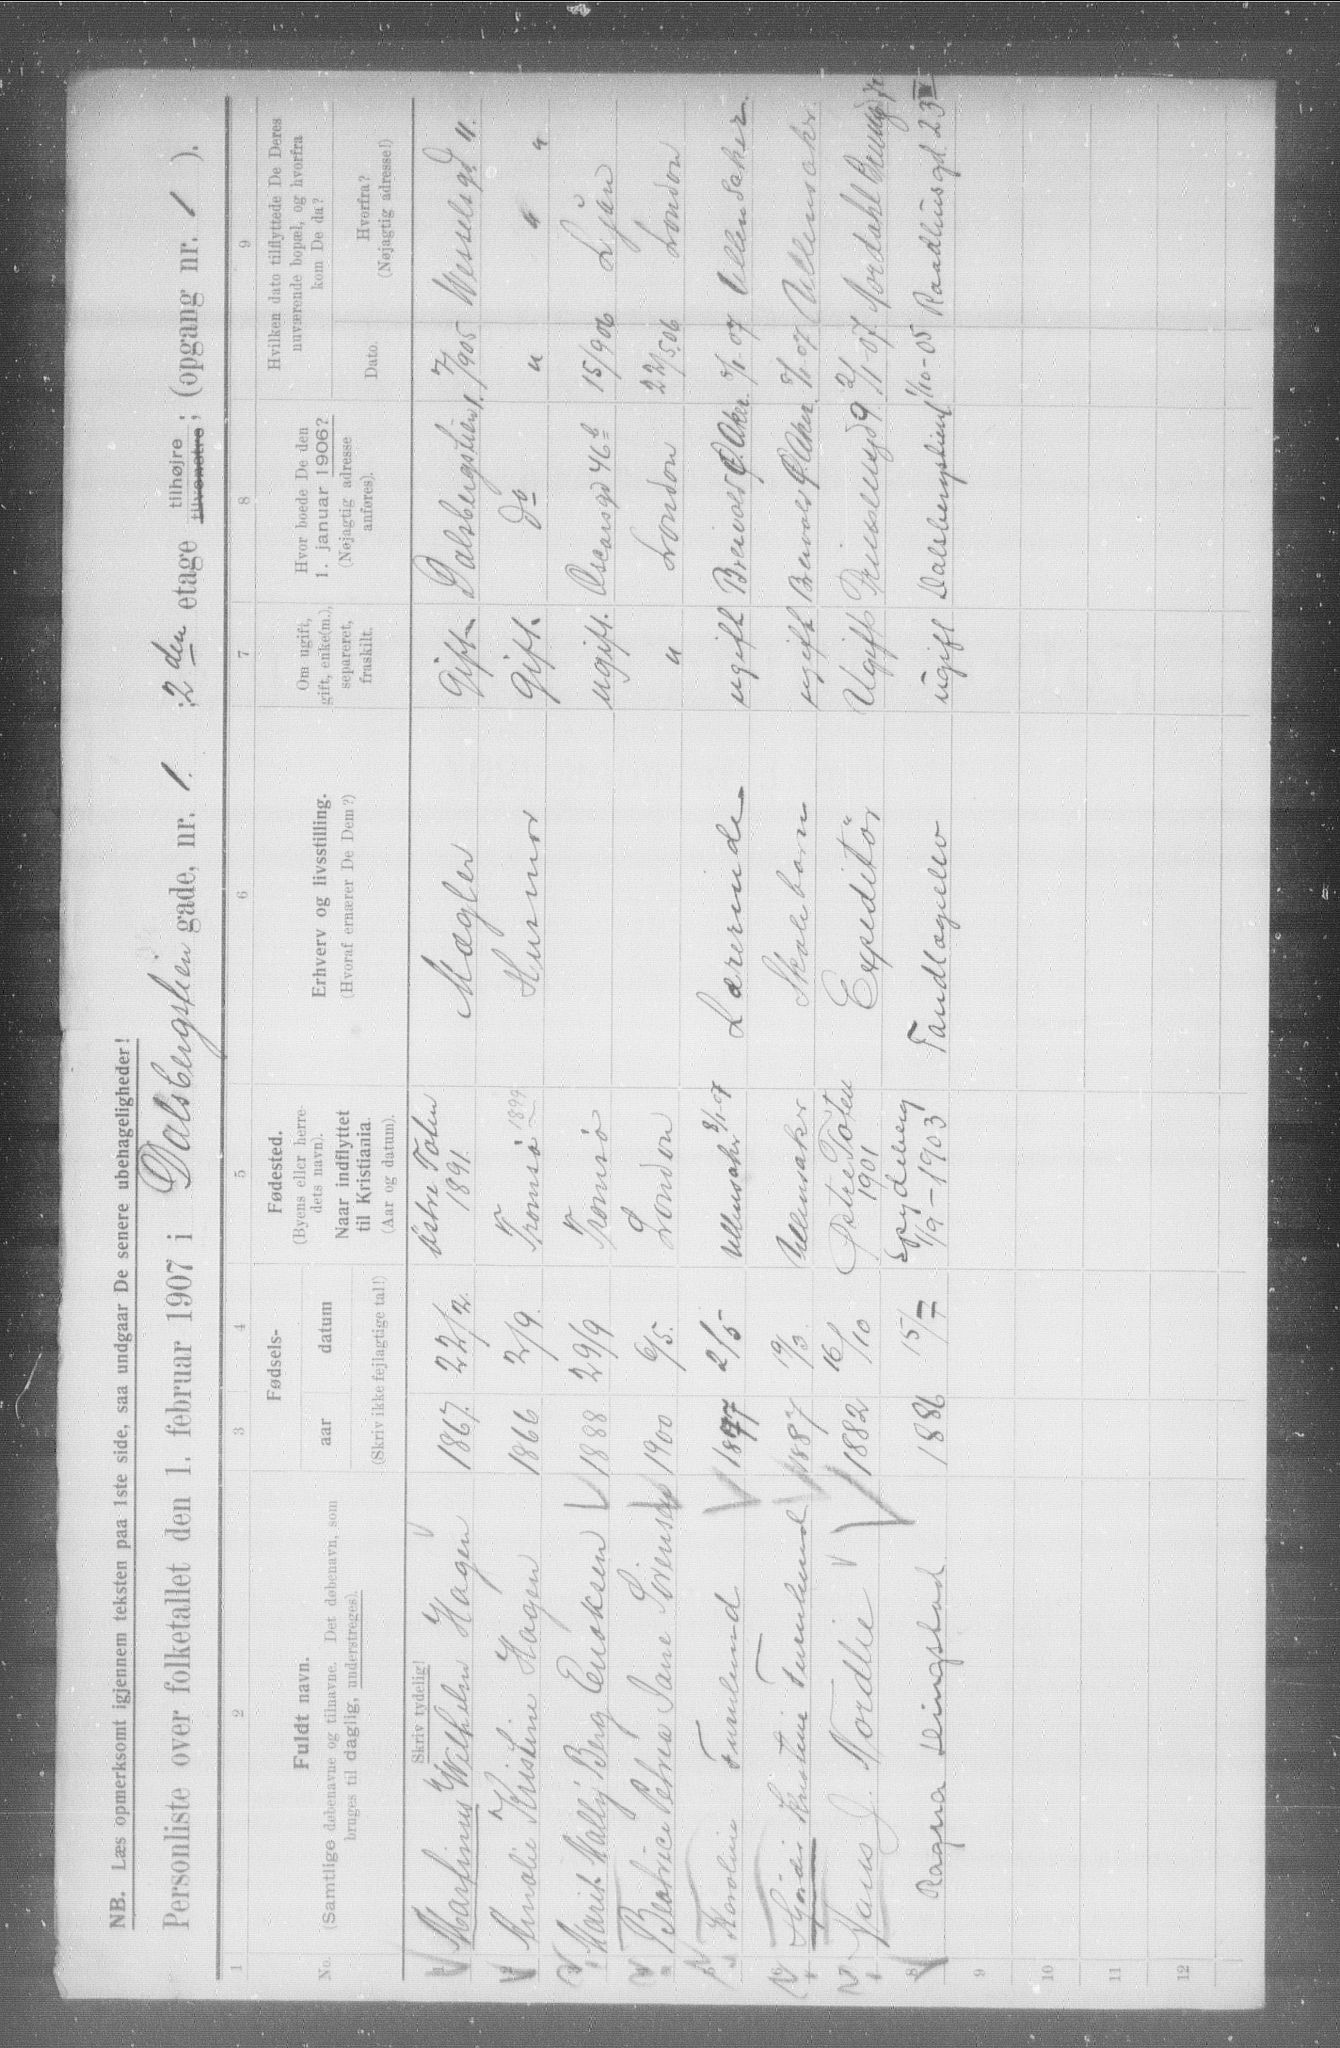 NB. Læs opmerksomt igjennem teksten paa 1ste side, saa undgaar De senere ubehageligheder!
Personliste over folketallet den 1. februar 1907 i Dalsbergstien gade, nr. 1. ; 2den etage tilhøjre tilvenstre ; (opgang nr. 1 ).
1 2 3 4 5 6 7 8 9
No.
Fuldt navn.
(Samtlige døbenavne og tilnavne. Det døbenavn, som
bruges til daglig, understreges).
Fødsels-
aar datum
(Skriv ikke fejlagtige tal!)
Fødested.
(Byens eller herre-
dets navn).
Naar indflyttet
til Kristiania.
(Aar og datum).
Erhverv og livsstilling.
(Hvoraf ernærer De Dem?)
Om ugift,
gift, enke(m.),
separeret,
fraskilt.
Hvor boede De den
1. januar 1906?
(Nøjagtig adresse
anføres).
Hvilken dato tilflyttede De Deres
nuværende bopæl, og hvorfra
kom De da?
Dato.
Hvorfra?
(Nøjagtig adresse!)
Skriv tydelig!
1 Martinus Wilhelm Hagen 1867. 22/2. Østre Toten 1891. Mægler Gift Dalsbergstien 1. 7/905 Wesselsgd 11.
2 Amalie Kristine Hagen 1866 2/9. Tromsø 1899 Husmor Gift. do " " "
3 Marit Mally Berg Enoksen 1888 29/9 Tromsø ugift. Oscarsgd 46b 15/906 Ljan
4 Beatrice Petrea Jane Sørensen 1900 6/5. London " London 22/5.06 London
5 Karoline Furulund 1877 2/5 Ullensaker 2/1 07 Lærerinde ugift Breivold Ø. Aker. 2/1 07 Ullensaker.
6 Kristine Furulund 1887 Ullensaker Skolebarn ugift Breivold Ø. Aker. Ullensaker
7 Hans J. Nordlie 1882 16/10 Østre Toten 1901 Expeditør Ugift Prinsensgd 9 2/1 07 Nordahl Brunsgd
8 Ragna 1886 15/7 Spydeberg 1/9-1903 Tandlægeelev ugift Dalsbergstien 1 1/10-05 Raadhusgd. 23 IV
9
10
11
12